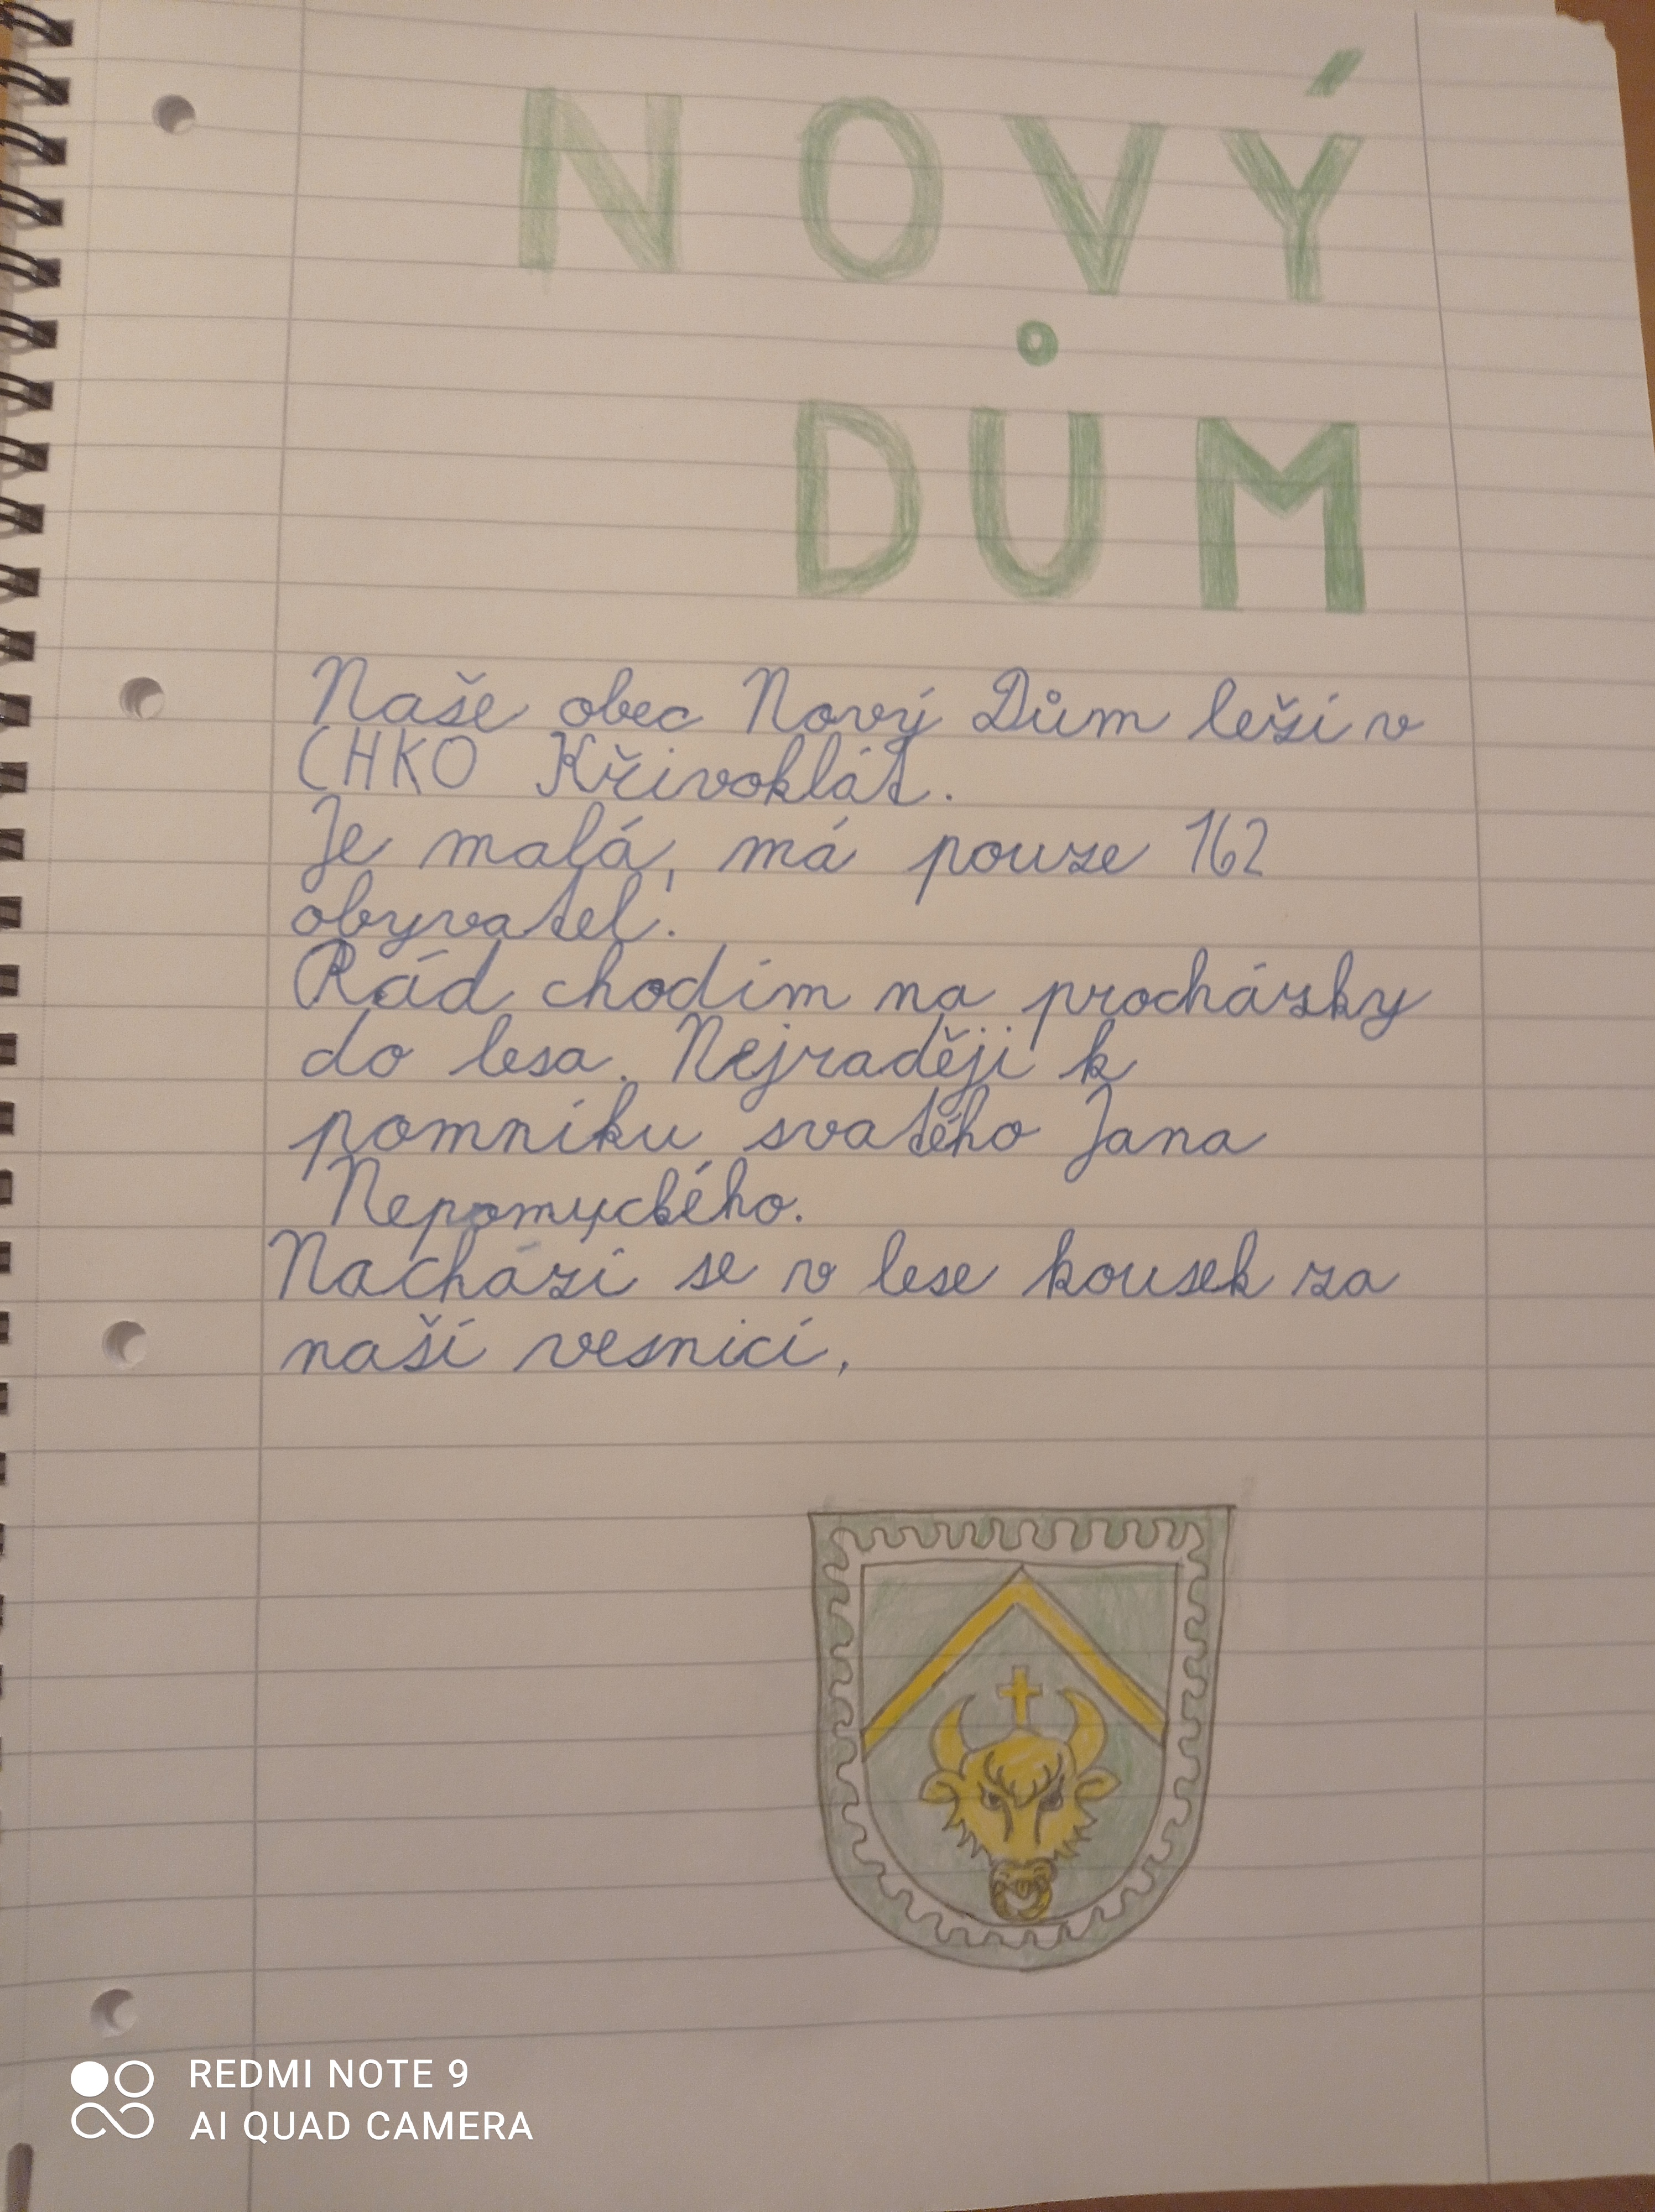 NOVÝ
DŮM
Naše obec Nový Dům leží v
CHKO Křivoklát.
Je malá, má pouze 162
obyvatel.
Rád chodím na procházky
do lesa. Nejraději k
pomníku svatého Jana
Nepomuckého.
Nachází se v lese kousek za
naší vesnicí,
REDMI NOTE 9
AI QUAD CAMERA